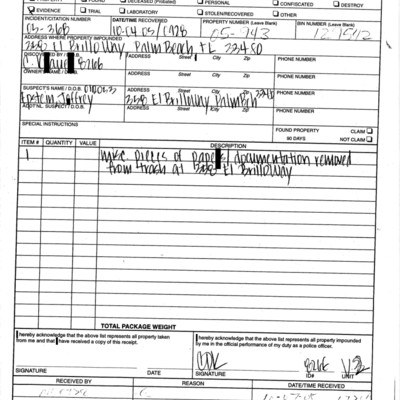 PROPERTY FOUND DECEASED (Probated) PERSONAL CONFISCATED DESTROY
EVIDENCE TRIAL LABORATORY STOLEN/RECOVERED OTHER
INCIDENT/CITATION NUMBER DATE/TIME RECOVERED PROPERTY NUMBER (Leave Blank) BIN NUMBER (Leave Blank)
05-368 10-04-05/ 05-943
ADDRESS WHERE PROPERTY IMPOUNDED
358 El Brillo Way, Palm Beach, FL 33480
DISCOVERED BY / ADDRESS Street City Zip PHONE NUMBER
8266
OWNER'S NAME / ADDRESS Street City Zip PHONE NUMBER
SUSPECT'S NAME / D.O.B. ADDRESS Street City Zip PHONE NUMBER
Epstein, Jeffrey 358 El Brillo Way Palm Bch
NAME / D.O.B. ADDRESS Street City Zip PHONE NUMBER
SPECIAL INSTRUCTIONS
FOUND PROPERTY CLAIM
90 DAYS NOT CLAIM
ITEM # QUANTITY VALUE DESCRIPTION
1 misc. pieces of documentation removed
from trash at 358 El Brillo Way
TOTAL PACKAGE WEIGHT
I hereby acknowledge that the above list represents all property taken
from me and that I have received a copy of this receipt.
I hereby acknowledge that the above list represents all property impounded
by me in the official performance of my duty as a police officer.
8266
SIGNATURE DATE SIGNATURE ID# UNIT
RECEIVED BY REASON DATE/TIME RECEIVED